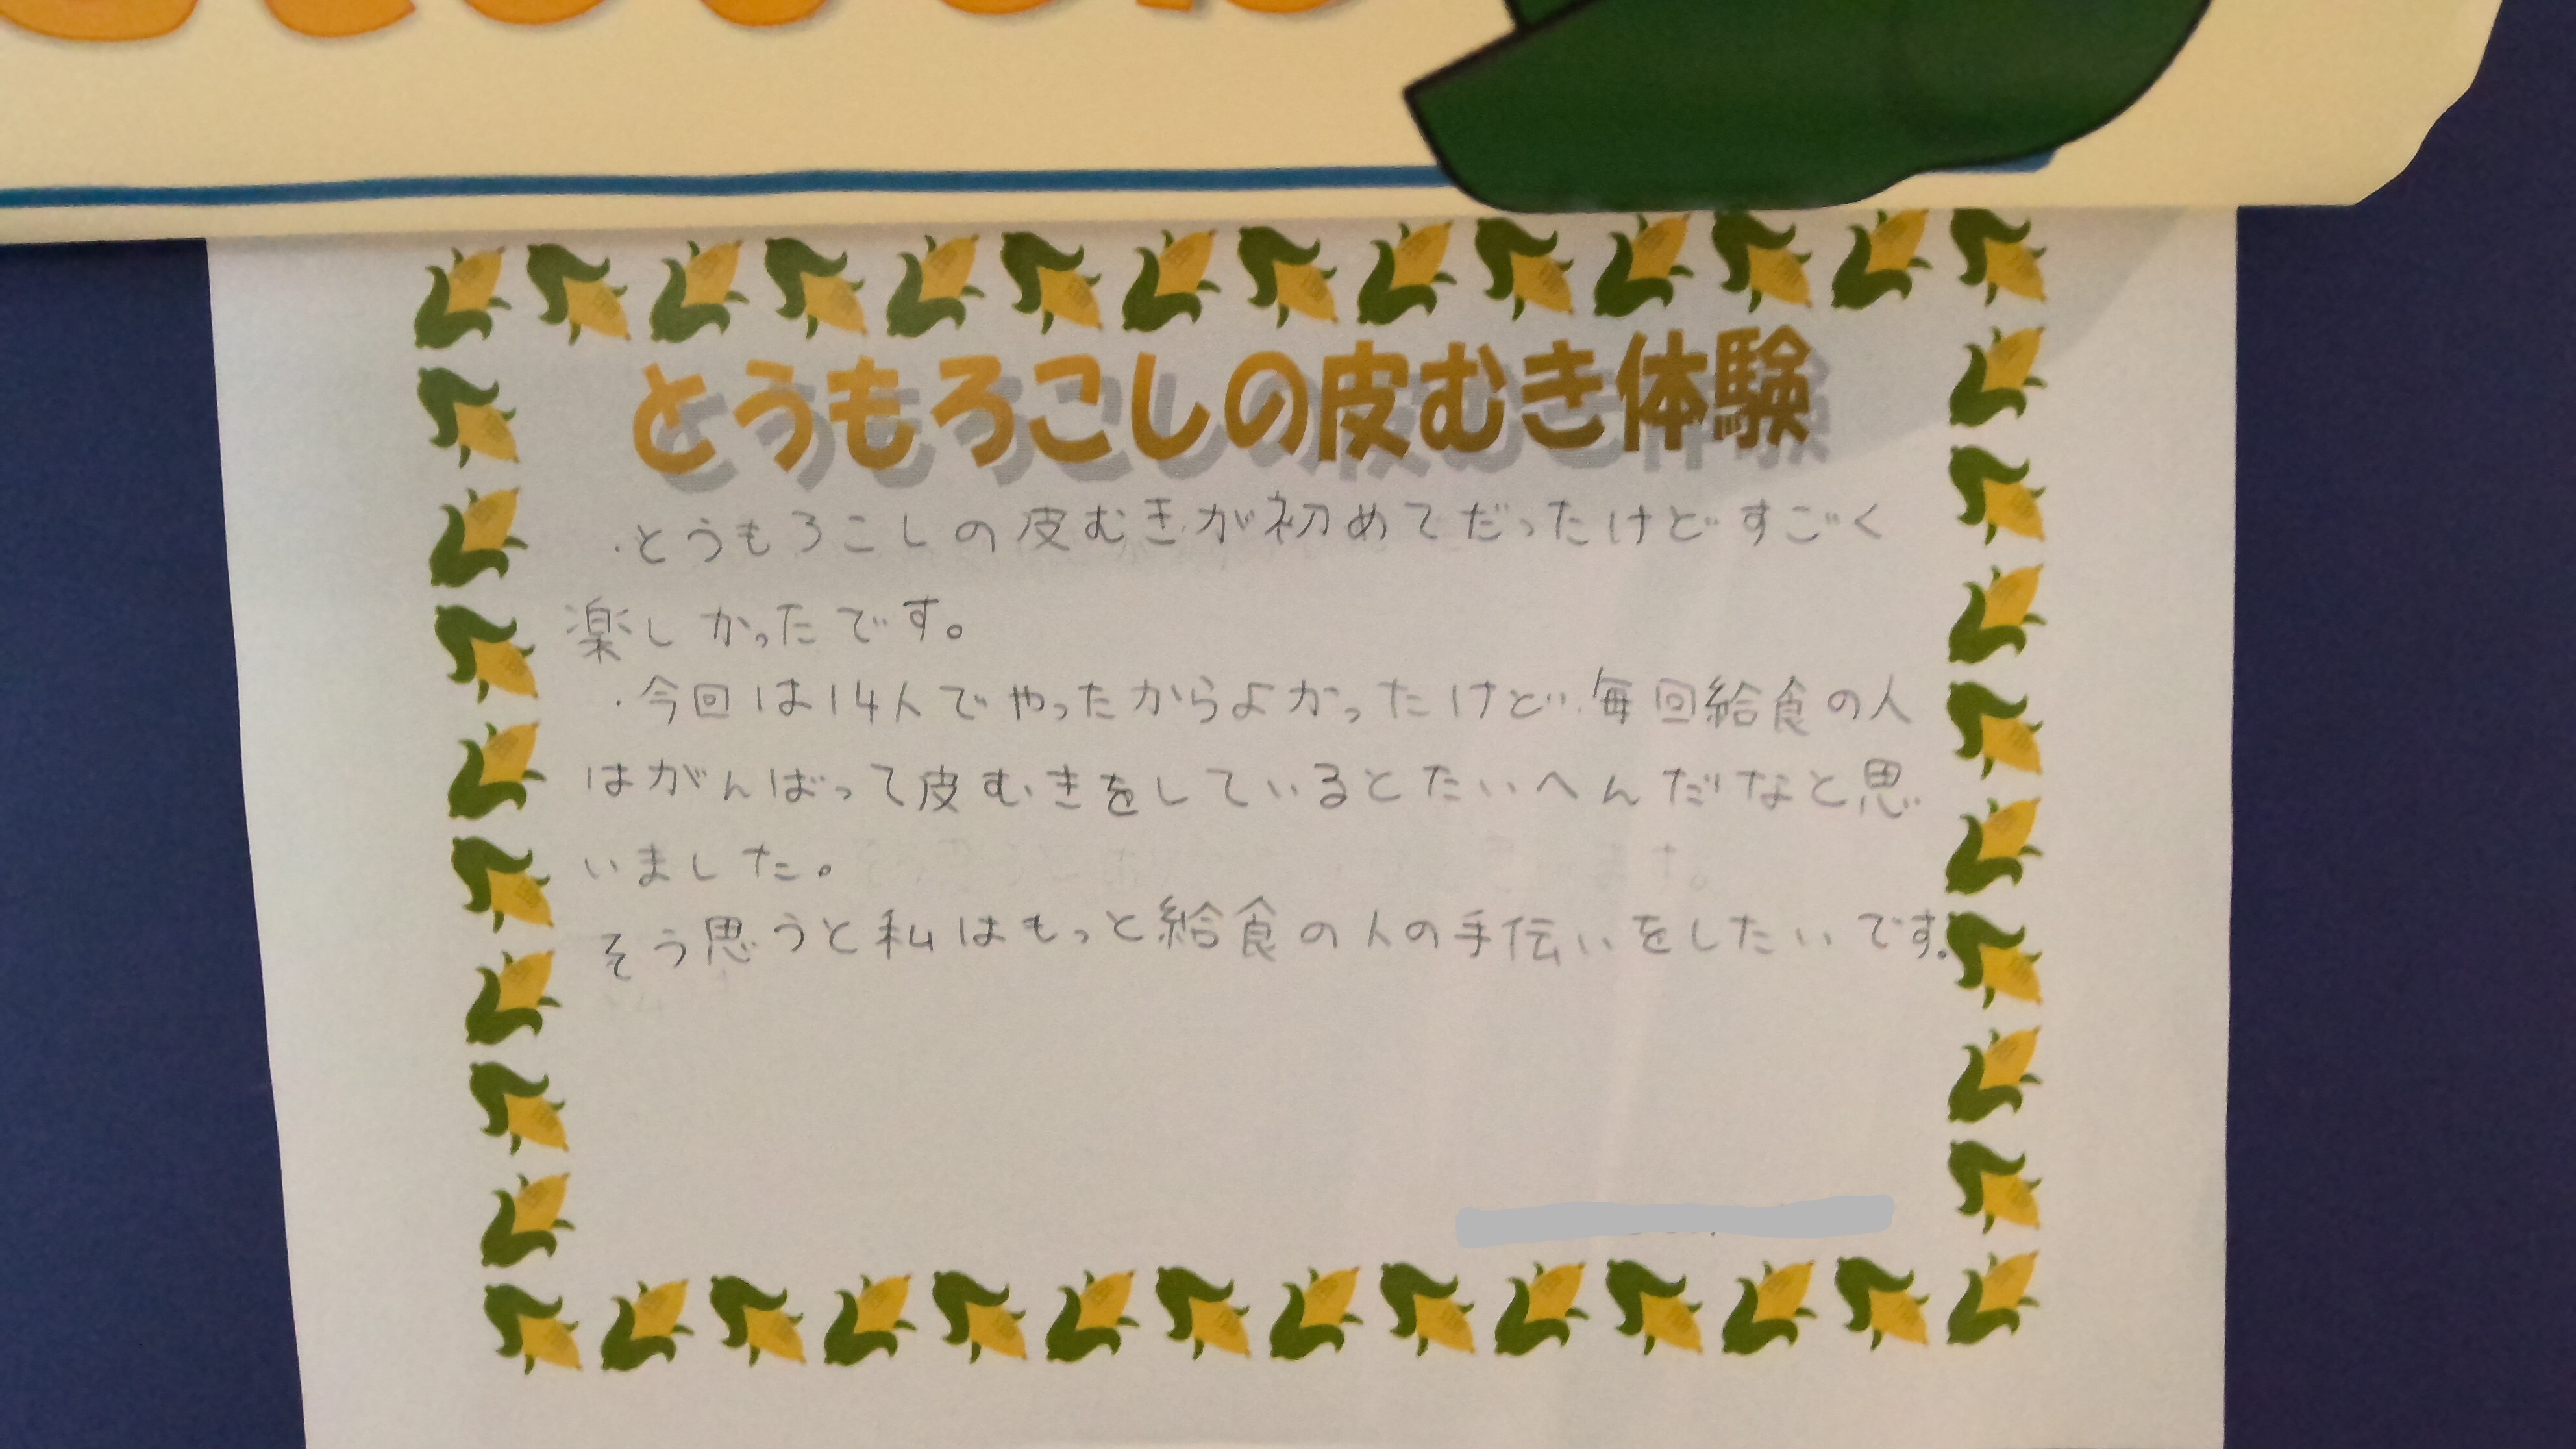 とうもろこしの皮むき体験
・とうもろこしの皮むきが初めてだったけどすごく
楽しかったです。
・今回は14人でやったからよかったけど毎回給食の人
はがんばって皮むきをしているとたいへんだなと思
いました。
そう思うと私はもっと給食の人の手伝いをしたいです。